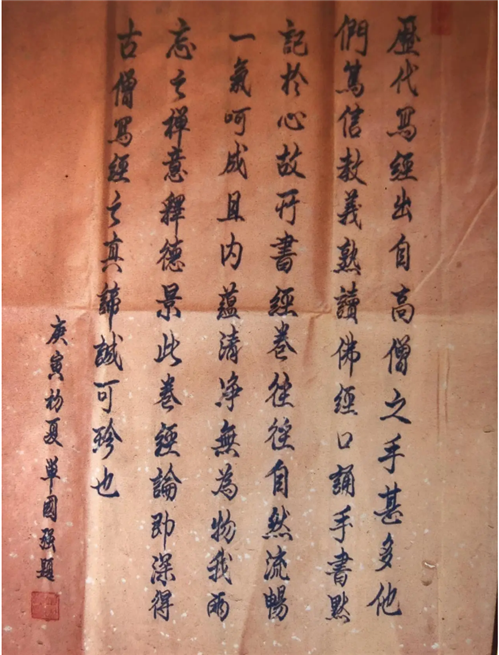 歷代寫經出自高僧之手甚多他
們篤信教義熟讀佛經口誦手書默
記於心故所書經卷往往自然流暢
一氣呵成且内蘊清净無為物我兩
忘之禅意釋德景此卷經論即深得
古僧寫經之真諦誠可珍也
庚寅初夏單國強題